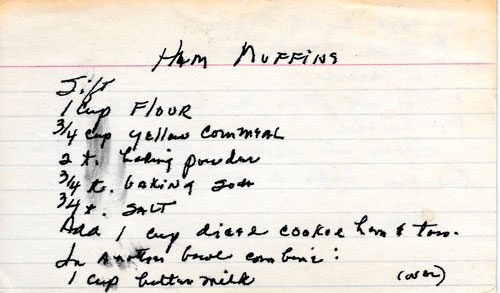 Ham Muffins
Sift
1 cup Flour
3/4 cup yellow cornmeal
2 t. baking powder
3/4 t. baking soda
3/4 t. SALT
Add 1 cup diced cooked ham & toss.
In another bowl combine:
1 cup buttermilk (over)